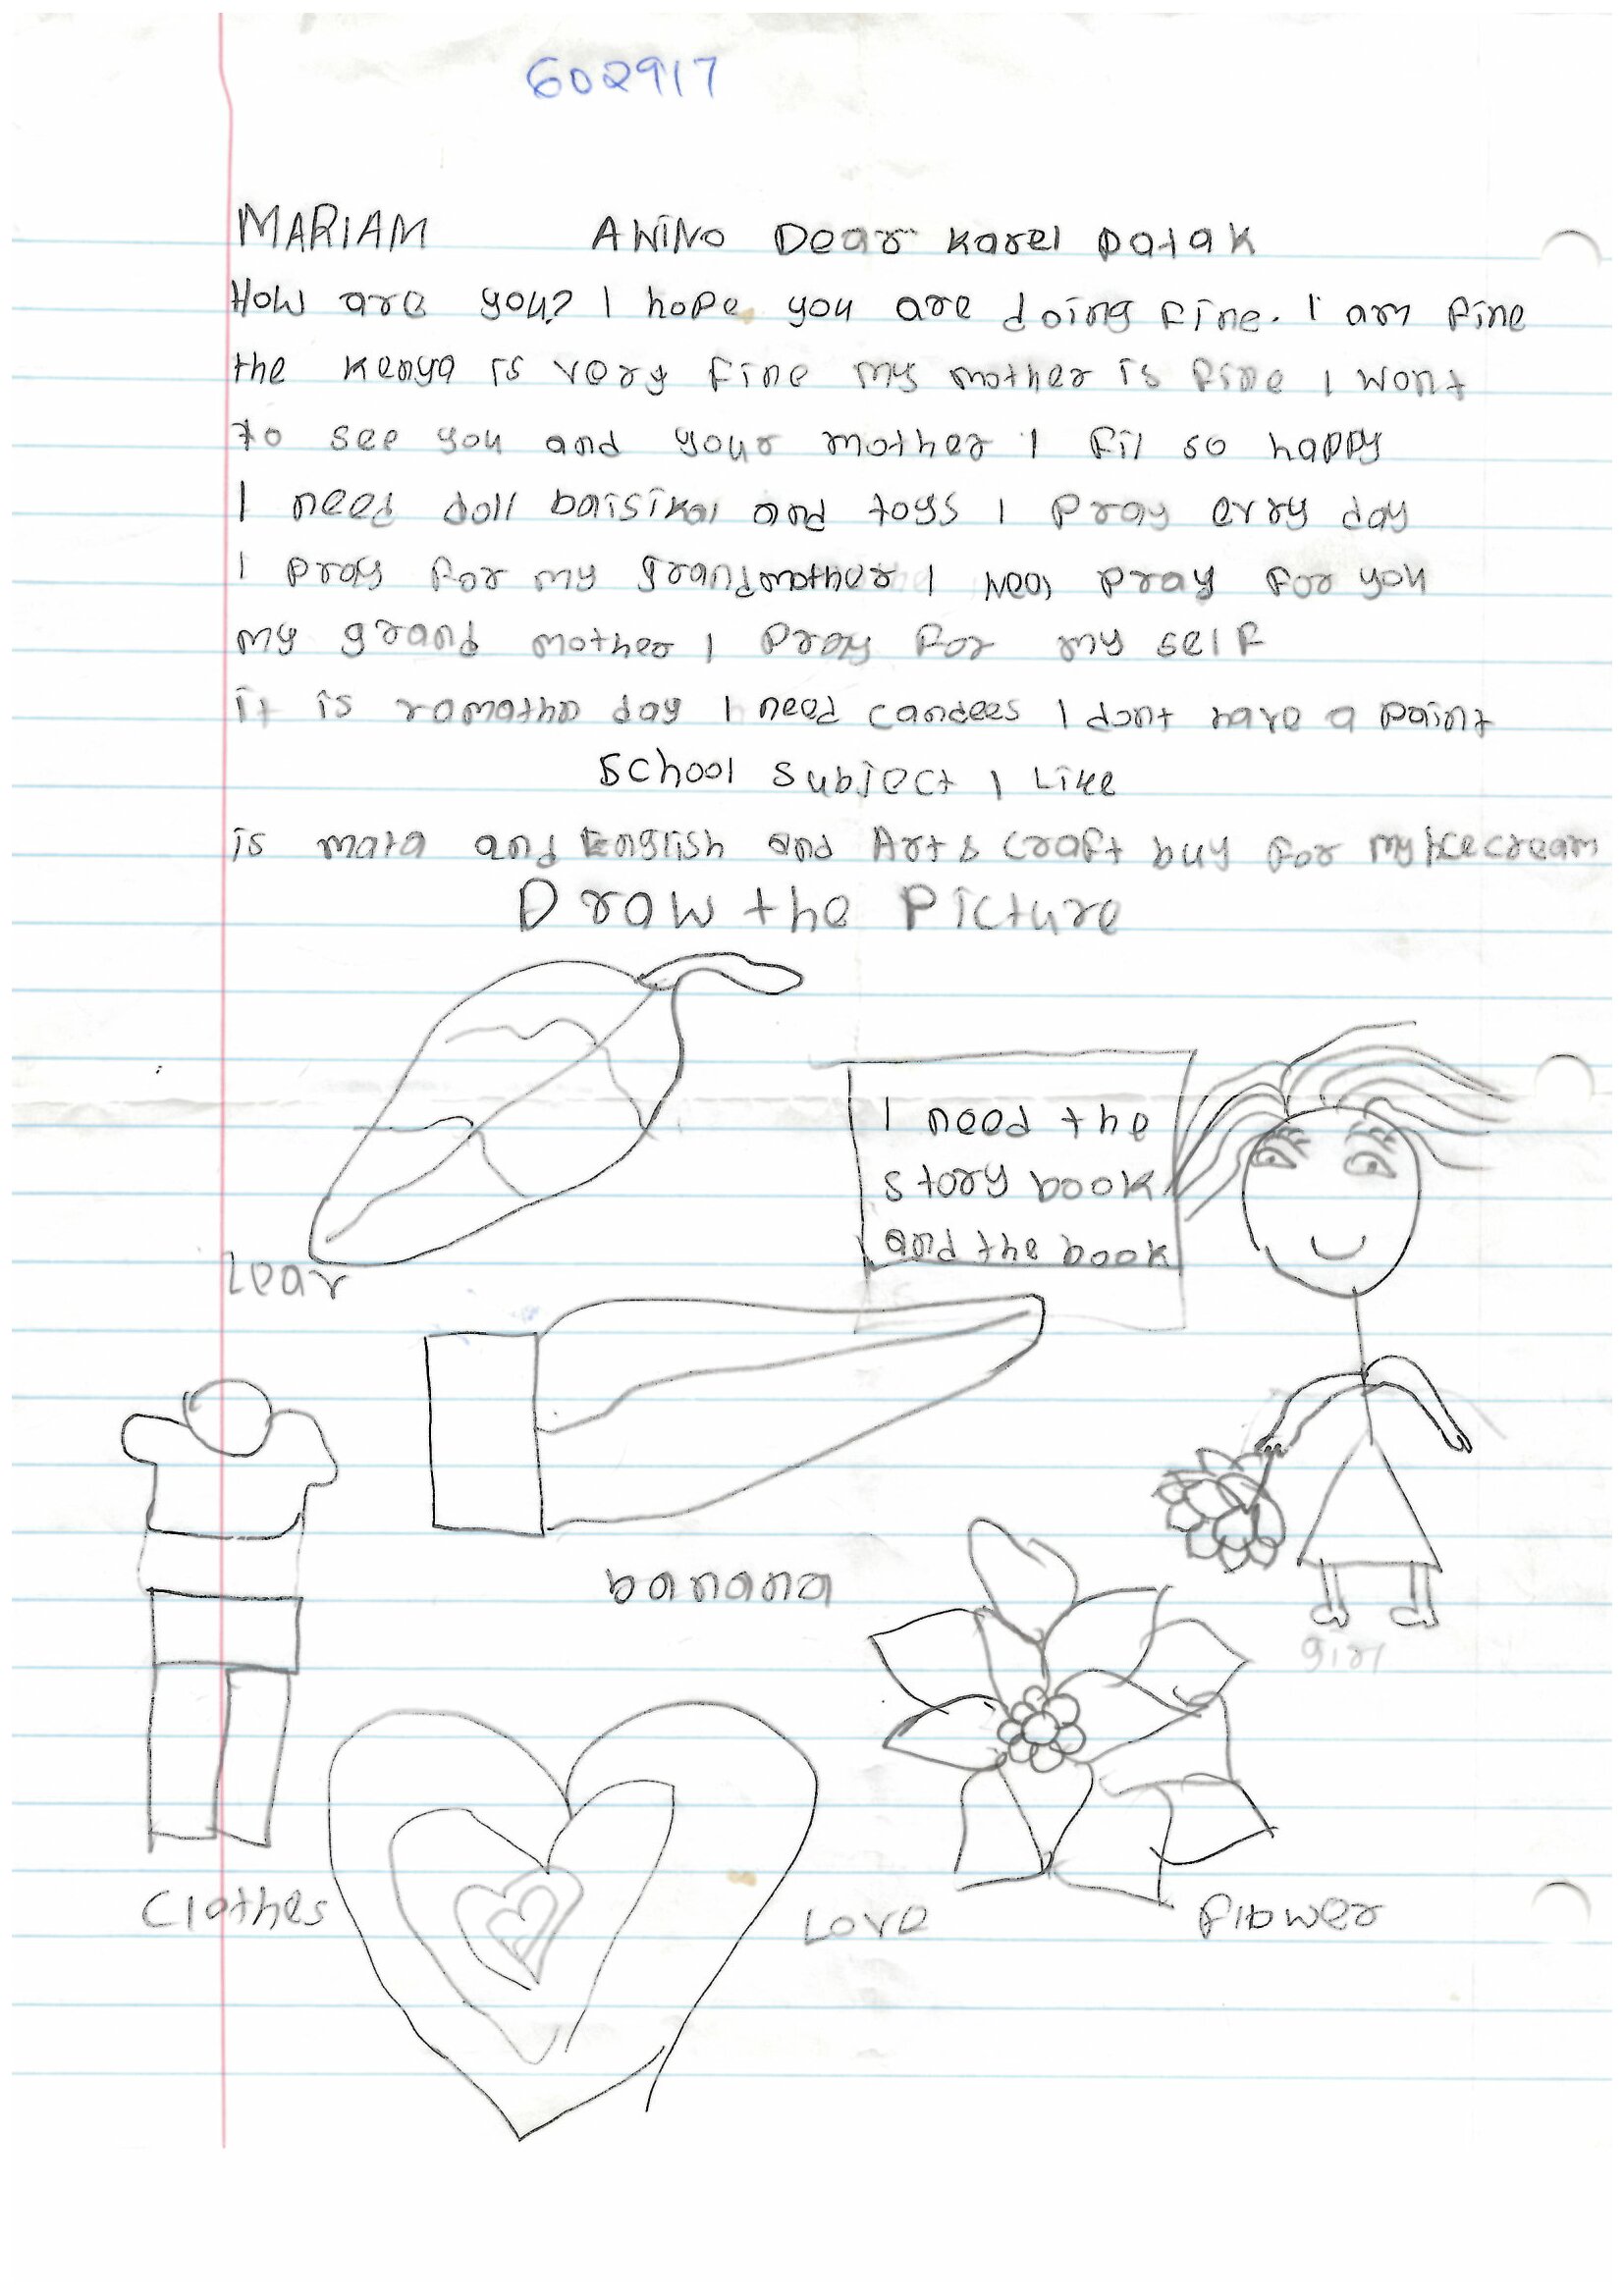 602917
MARIAM AWiNo Dear Karel patak
How are you? I hope you are doing fine. I am fine
the Kenya is very fine my mother is fine I wont
to see you and your mother I fil so happy
I need doll baisikal and toys I pray erry day
I pray for my grandmother I pray for you
my grand mother I pray for my self
it is day I need candees I dont have a paint
School Subject I Like
is mata and English and Art & Craft buy for my Icecream
Draw the Picture
I need the
story book
and the book
Lear
banana
girl
Clothes
Love
flower